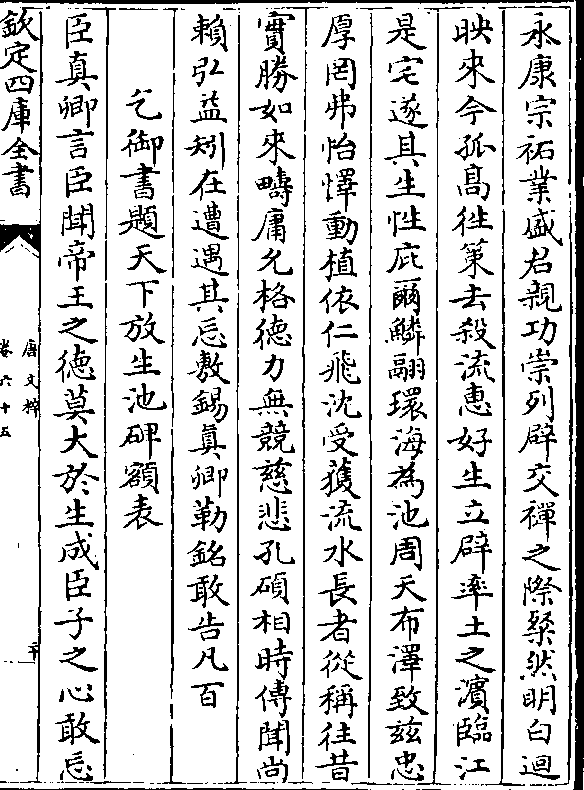 永康宗祏業盛君親功崇列辟交禪之際粲然明白迥
映來今孤髙徃䇿去殺流惠好生立辟率土之濵臨江
是宅遂其生性庇爾鱗翮環海為池周天布澤致兹忠
厚罔弗怡懌動植依仁飛沈受獲流水長者從稱往昔
寳勝如來疇庸允格德力無競慈悲孔碩相時傳聞尚
賴弘益矧在遭遇其忘敷錫眞卿勒銘敢告凡百
乞御書題天下放生池碑額表
臣真卿言臣聞帝王之德莫大於生成臣子之心敢忘
欽定四庫全書
唐文粹
卷六十五